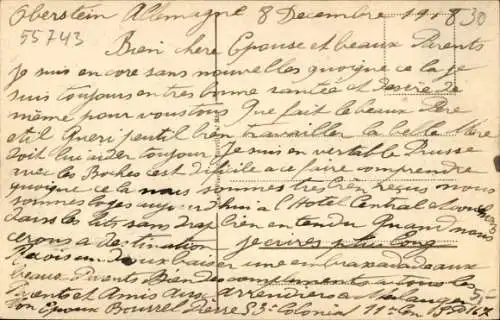 Oberstein Allemagne 8 Decembre 1918
30
55743
Bien chere Epouse et beaux Parents
Je suis encore sans nouvelles quoique cela je
suis toujours en tres bonne santée et desire de
même pour vous tous Que fait le beaux Père
et il Queri peut il bien travailler la belle Mère
doit lui aider toujour Je suis en vertable Prusse
avec les Boches c'est difficile a ce faire comprendre
quoique cela nous sommes tres bien reçus nous
sommes loges aujourd'hui a l'Hotel Central et
dans les lits sans drap bien entendu Quand nous
serons a destination je ecrirez plus long
Recois un doux baiser une embrassade aux
beaux Parents Bien des compliments a tous les
Parents et Amis aux
ton Epoux Bourrel Pierre 53e Colonial 11e Cie